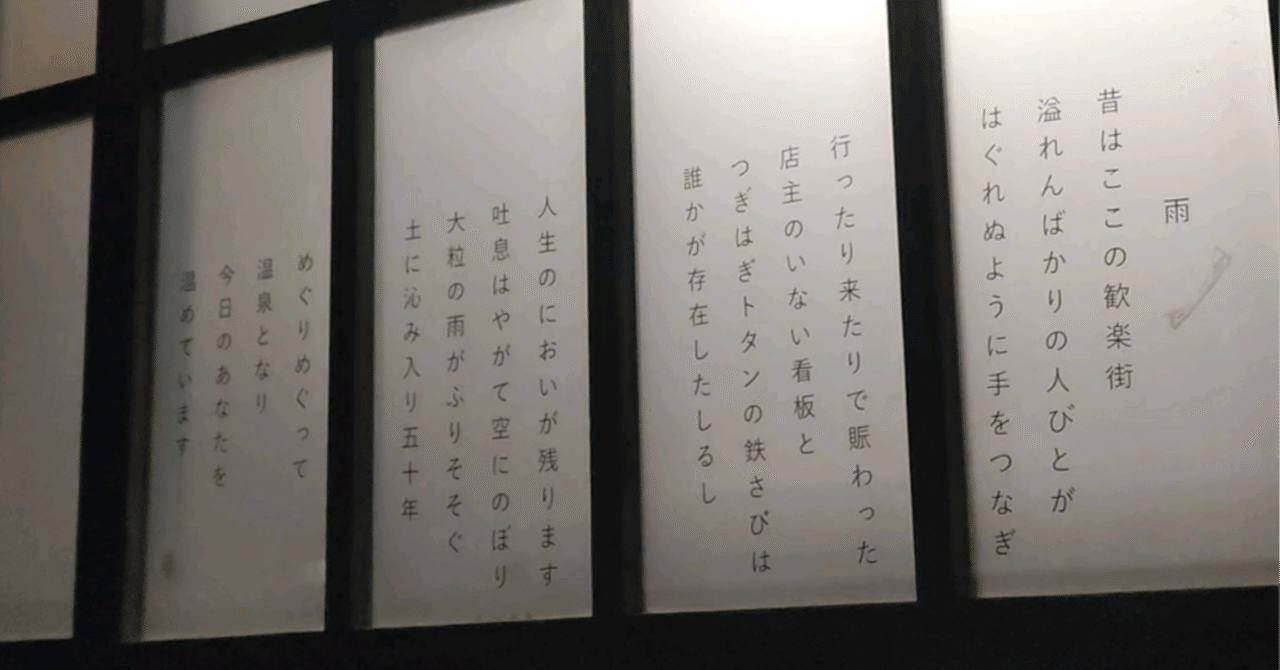 雨
昔はここの歓楽街
溢れんばかりの人びとが
はぐれぬように手をつなぎ
行ったり来たりで賑わった
店主のいない看板と
つぎはぎトタンの鉄さびは
誰かが存在したしるし
人生のにおいが残ります
吐息はやがて空にのぼり
大粒の雨がふりそそぐ
土に沁み入り五十年
めぐりめぐって
温泉となり
今日のあなたを
温めています